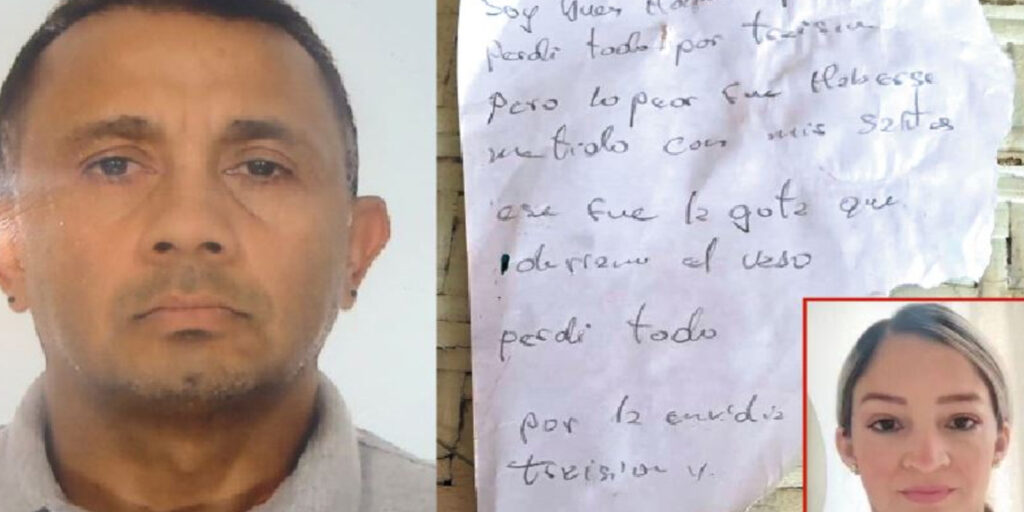 Soy
Perdi todo por traision
Pero lo peor fue Haberse
metido con mis santos
ese fue la gota que
el vaso
perdi todo
por la envidia
traision y.